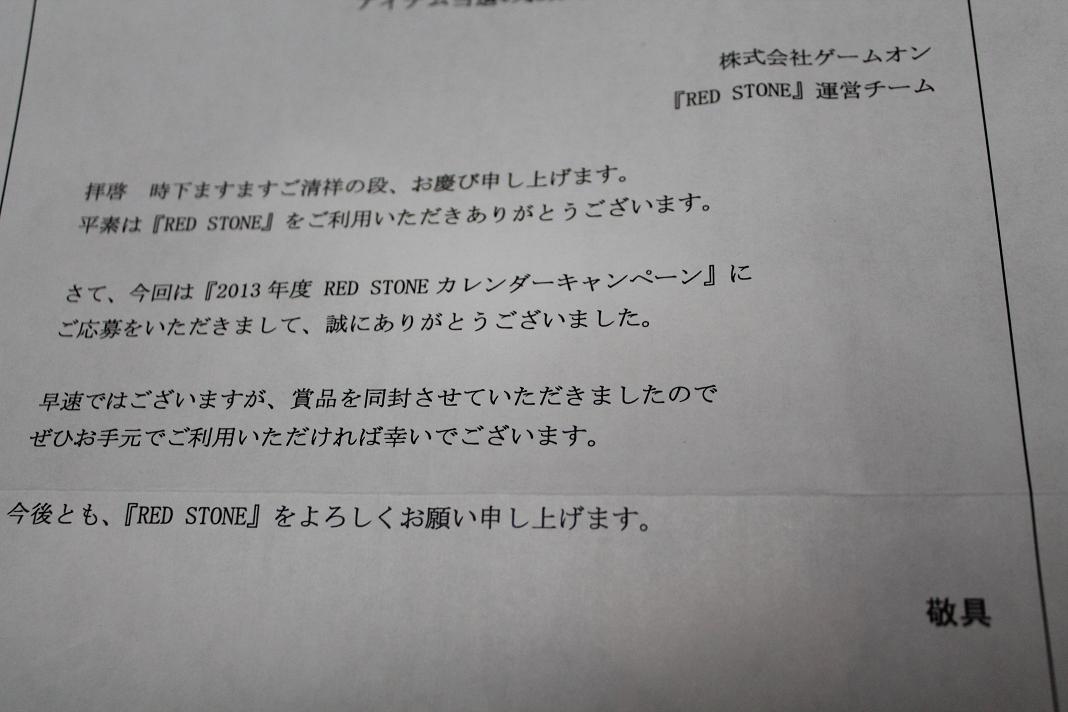 アイテム当選
株式会社ゲームオン
『RED STONE』運営チーム
拝啓　時下ますますご清祥の段、お慶び申し上げます。
平素は『RED STONE』をご利用いただきありがとうございます。
さて、今回は『2013年度 RED STONEカレンダーキャンペーン』に
ご応募をいただきまして、誠にありがとうございました。
早速ではございますが、賞品を同封させていただきましたので
ぜひお手元でご利用いただければ幸いでございます。
今後とも、『RED STONE』をよろしくお願い申し上げます。
敬具